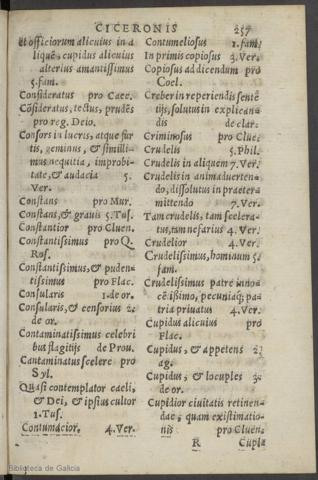 CICERONIS 257
et officiorum alicuius in a
liquē, cupidus alicuius
alterius amantissimus
5. fam.
Consideratus pro Caec.
Cōsideratus, tectus, prudēs
pro reg. Deio.
Consors in lucris, atque fur
tis, geminus, & simillimus
nequitia, improbi-
tate, & audacia 5.
Ver.
Constans pro Mur.
Constans, & grauis 5. Tus.
Constantior pro Cluen.
Constantissimus pro Q.
Ros.
Constantissimus, & puden-
tissimus pro Flac.
Consularis 1. de or.
Consularis, & censorius 2.
de or.
Contaminatissimus celebri
bus flagitijs de Prou.
Cantaminatus scelere pro
Syl.
Quasi contemplator caeli,
& Dei, & ipsius cultor
1. Tus.
Contumacior. 4. Ver.
Contumeliosus 1. fam.
In primis copiosus 3. Ver.
Copiosus ad dicendum pro
Coel.
Creber in reperiendis sentē
tijs, solutus in explican-
dis de clar.
Criminosus pro Clue.
Crudelis 5. Phil.
Crudelis in aliquem 7. Ver.
Crudelis in animaduerten-
do, dissolutus in praeter
mittendo 7. Ver.
Tam crudelis, tam scelera-
tus, tam nefarius 4. Ver.
Crudelior 4. Ver.
Crudelissimus, hominum 5.
fam.
Crudelissimus patre inno-
cētissimo, pecuniaq; pa-
tria priuatus 4. Ver.
Cupidus alicuius pro
Flac.
Cupidus, & appetens 2.
ag.
Cupidus, & locuples 3.
de or.
Cupidior ciuitatis retinen-
dae, quam existimatio-
nis pro Cluen.
R Cupi
Biblioteca de Galicia